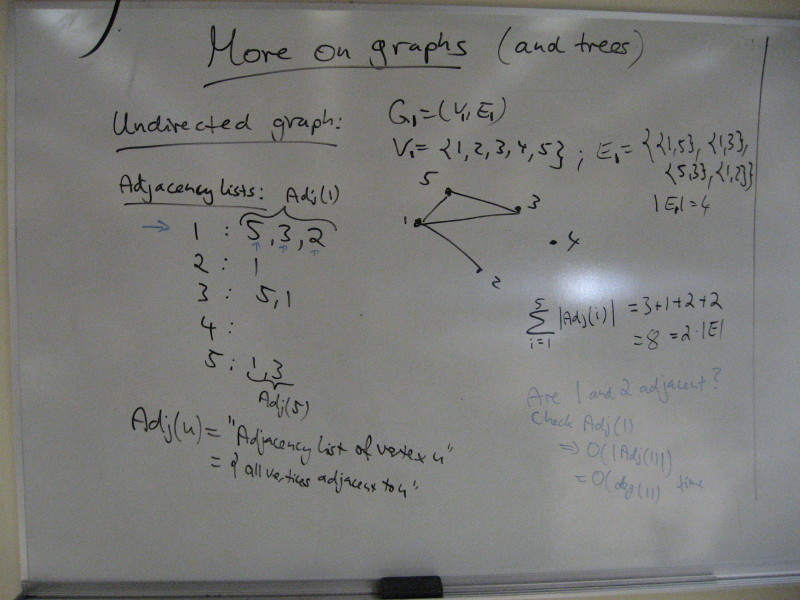 More on graphs (and trees)
Undirected graph:
G₁=(V₁,E₁)
V₁= {1,2,3,4,5} ; E₁= {{1,5}, {1,3},
{5,3}, {1,2}}
|E₁|=4
Adjacency lists: Adj(1)
→ 1 : 5,3,2
2 : 1
3 : 5,1
4 :
5 : 1,3
Adj(5)
5
3
1
4
2
5
∑ |Adj(i)| = 3+1+2+2
i=1
= 8 = 2·|E|
Adj(u) = "Adjacency list of vertex u"
= { all vertices adjacent to u"
Are 1 and 2 adjacent?
Check Adj(1)
⇒ O(|Adj(1)|)
= O(deg(1)) time